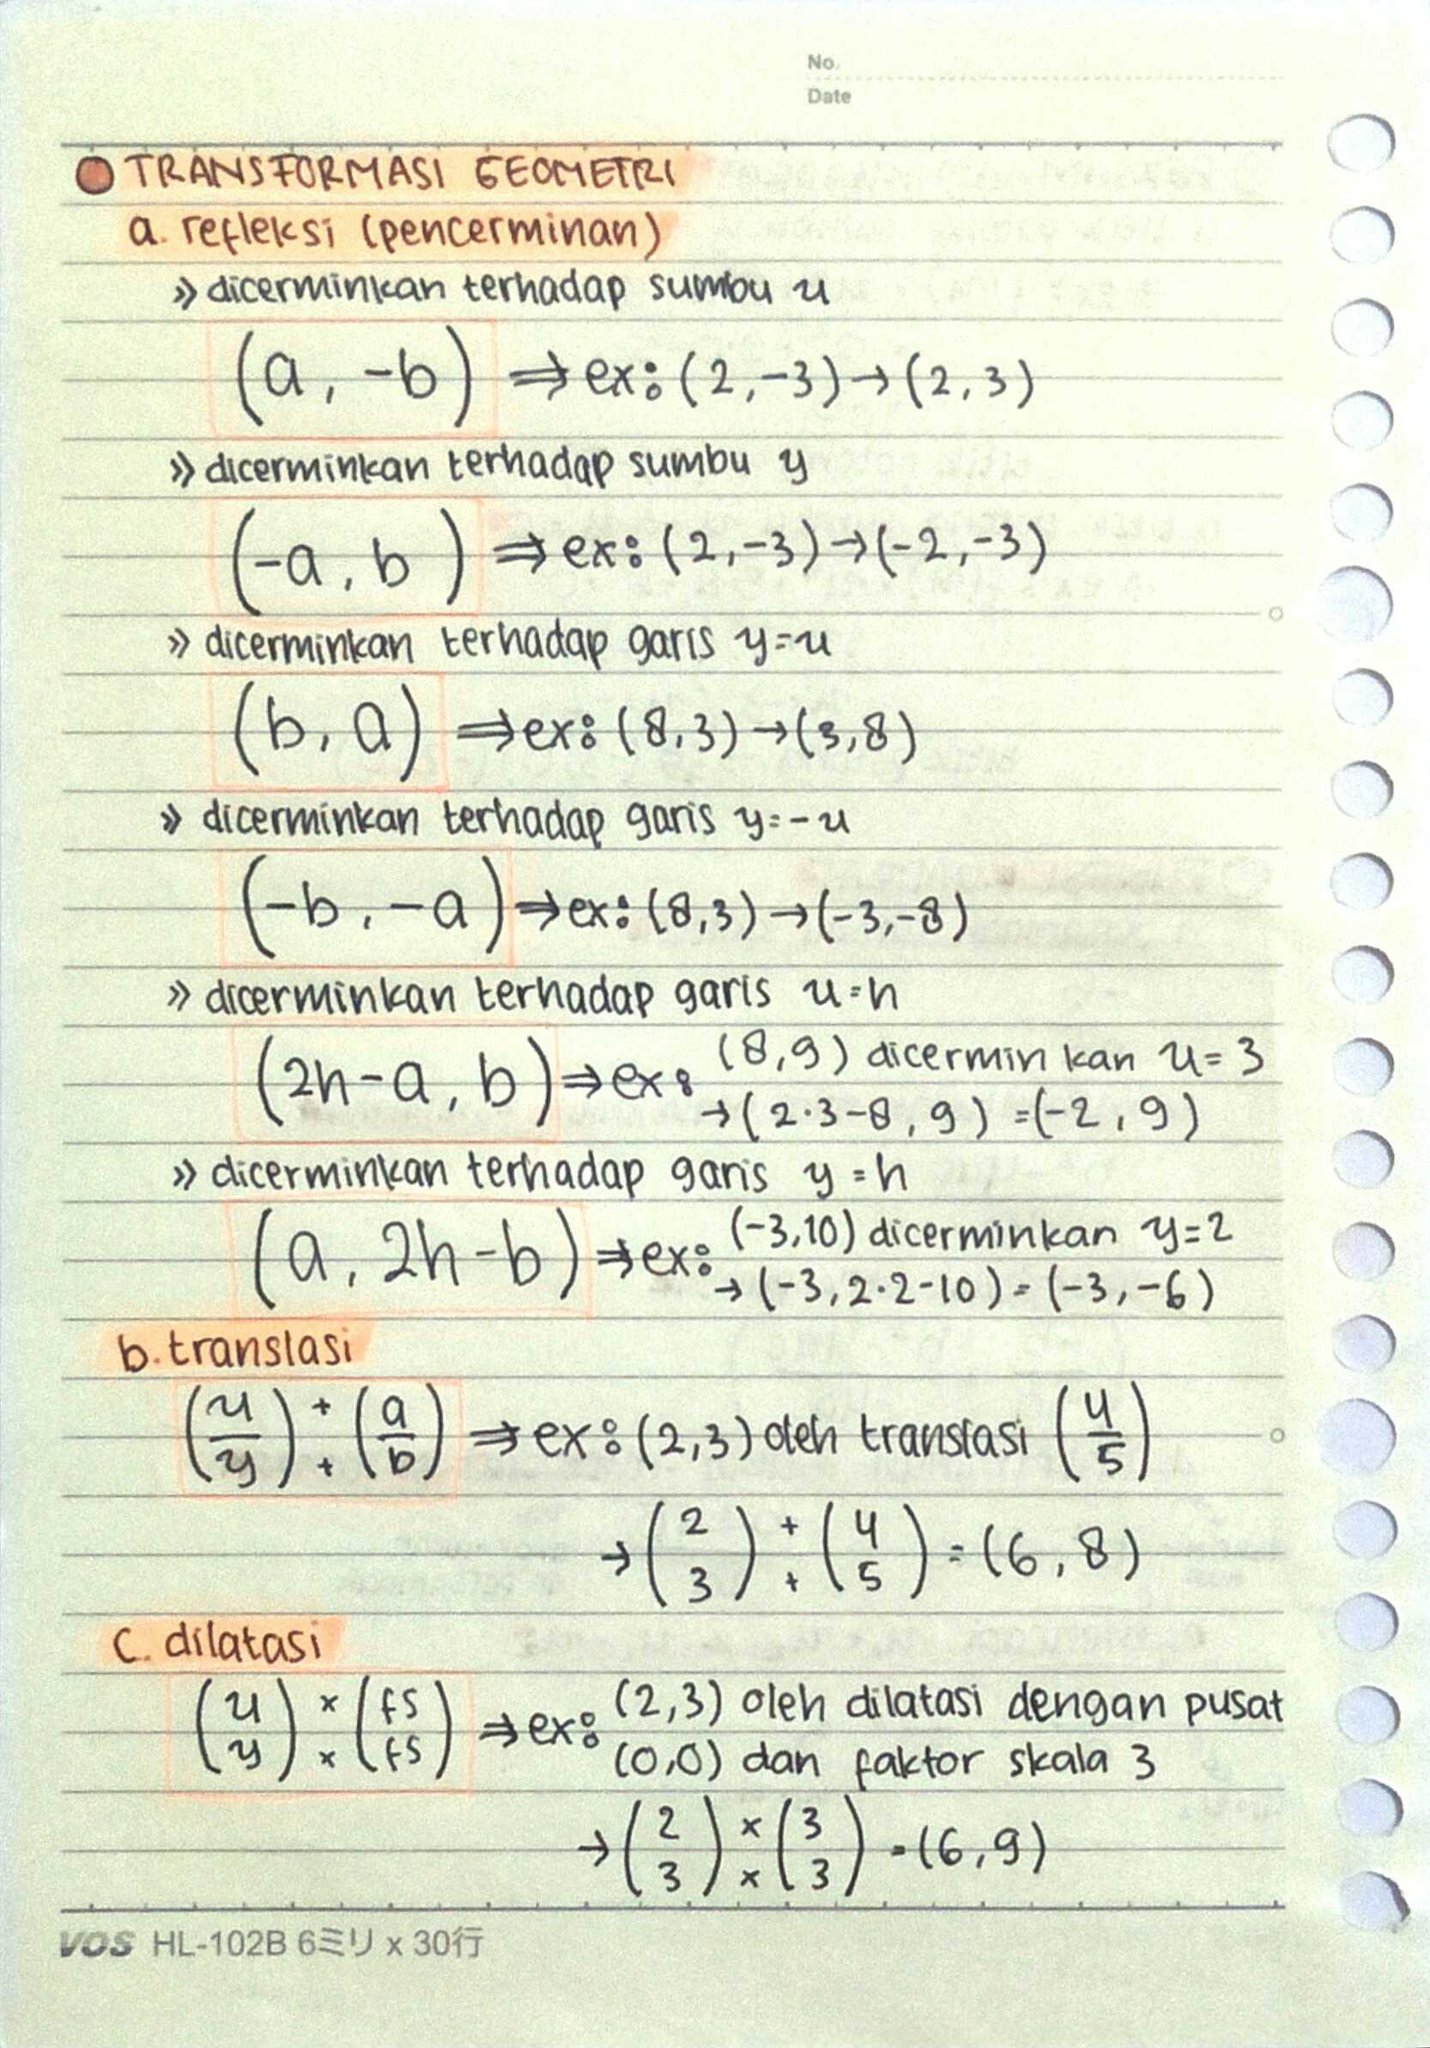 No.
Date
TRANSFORMASI GEOMETRI
a. refleksi (pencerminan)
» dicerminkan terhadap sumbu x
(a, -b) ⇒ ex: (2,-3) → (2,3)
» dicerminkan terhadap sumbu y
(-a, b) ⇒ ex: (2,-3) → (-2,-3)
» dicerminkan terhadap garis y=x
(b, a) ⇒ ex: (8,3) → (3,8)
» dicerminkan terhadap garis y=-x
(-b, -a) ⇒ ex: (8,3) → (-3,-8)
» dicerminkan terhadap garis x=h
(2h-a, b) ⇒ ex: (8,9) dicerminkan x=3
→ (2·3-8, 9) = (-2, 9)
» dicerminkan terhadap garis y=h
(a, 2h-b) ⇒ ex: (-3,10) dicerminkan y=2
→ (-3, 2·2-10) = (-3, -6)
b. translasi
(x/y) + + (a/b) ⇒ ex: (2,3) oleh translasi (4/5)
→ (2 3) + + (4 5) = (6, 8)
c. dilatasi
(x y) × × (fs fs) ⇒ ex: (2,3) oleh dilatasi dengan pusat
(0,0) dan faktor skala 3
→ (2 3) × × (3 3) = (6,9)
VOS HL-102B 6ミリ x 30行